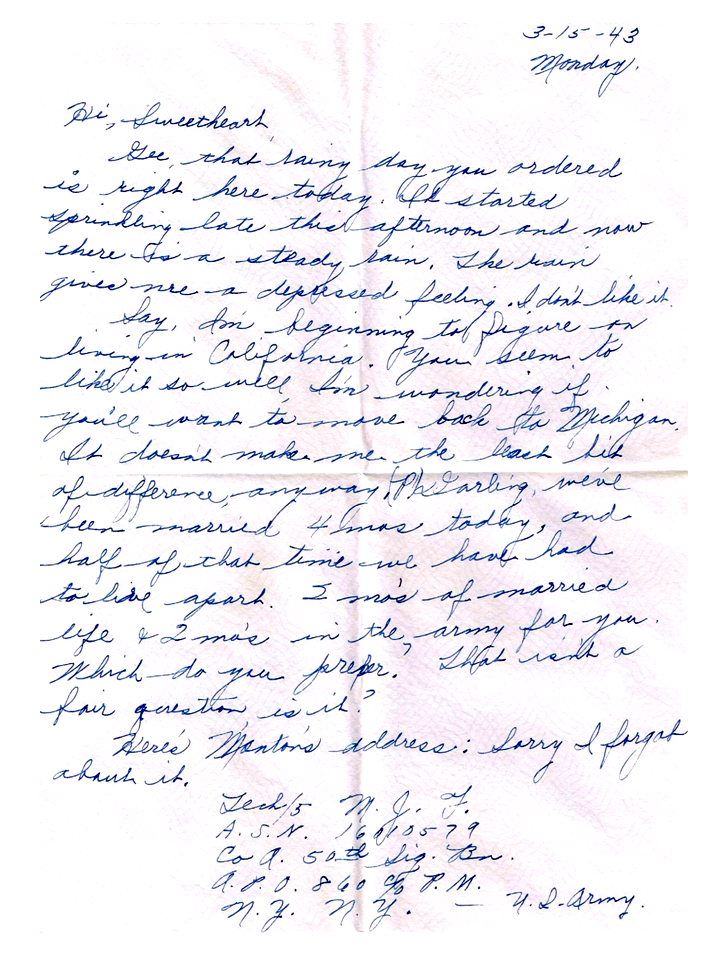 3-15-43
Monday.
Hi, Sweetheart,
Gee, that rainy day you ordered
is right here today. It started
sprinkling late this afternoon and now
there is a steady rain. The rain
gives me a depressed feeling. I don't like it.
Say, I'm beginning to figure on
living in California. You seem to
like it so well I'm wondering if
you'll want to move back to Michigan.
It doesn't make me the least bit
of difference, anyway, (P) Darling, we've
been married 4 mos today, and
half of that time we have had
to live apart. 2 mo's of married
life & 2 mo's in the army for you.
Which do you prefer? That isn't a
fair question is it?
Here's address: Sorry I forgot
about it.
Tech/5 M. J. F.
A.S.N. 16010579
Co A. 50th Sig. Bn.
A.P.O. 860 c/o P.M.
N.Y. N.Y. — U.S. Army.